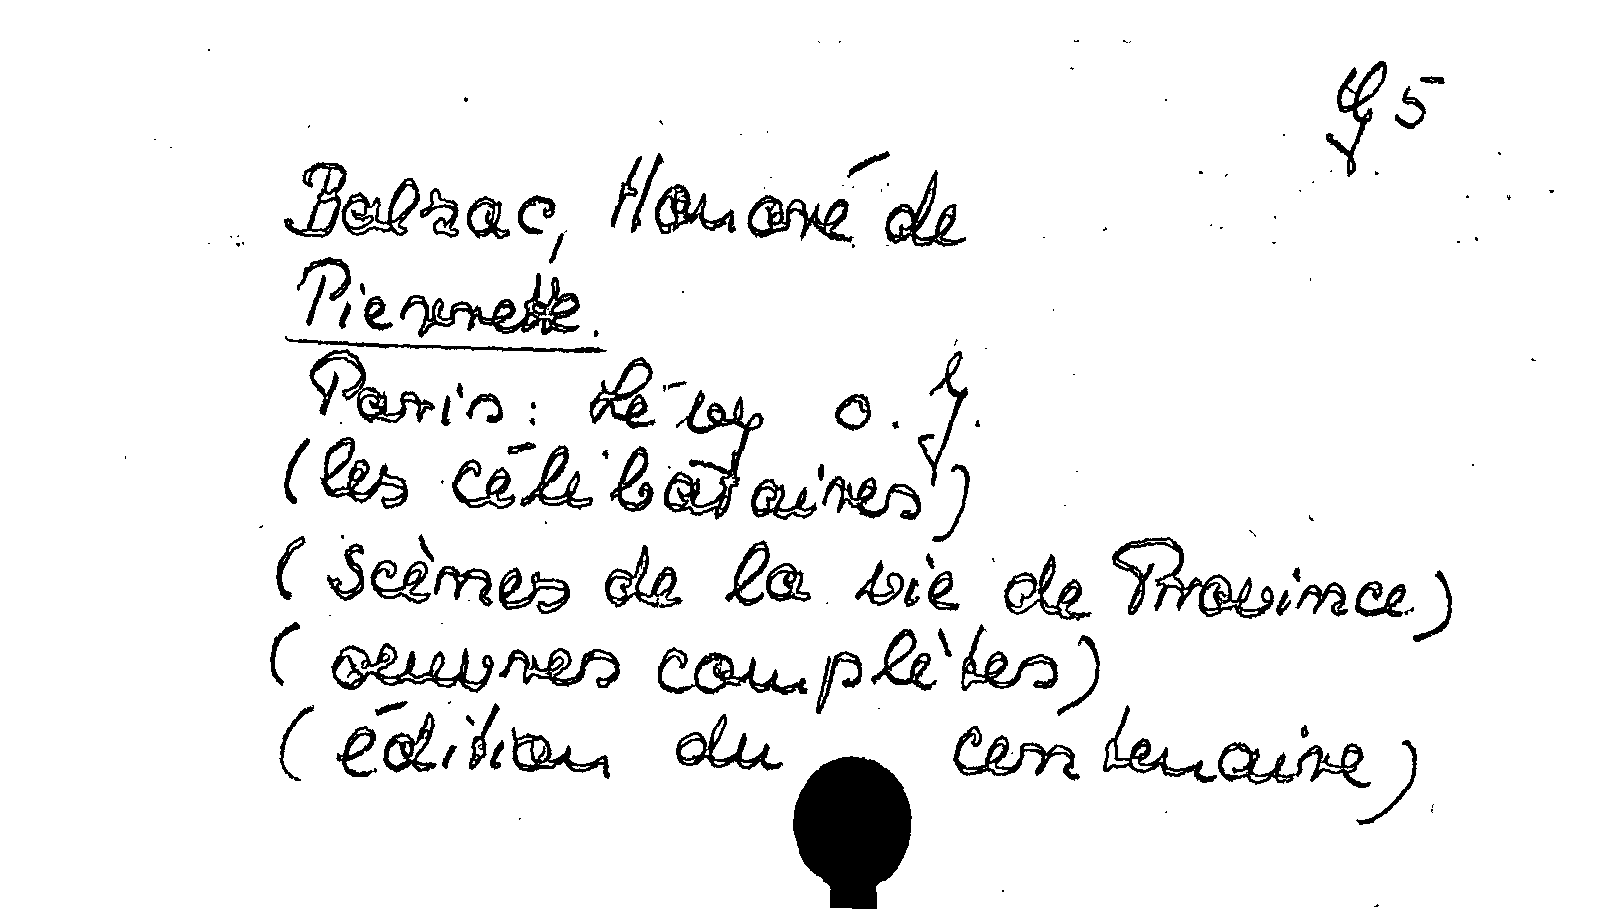 Y 5
Balzac, Honoré de
Pierrette.
Paris: Lévy o. J.
(les célibataires)
(Scènes de la vie de Province)
(œuvres complètes)
(édition du centenaire)